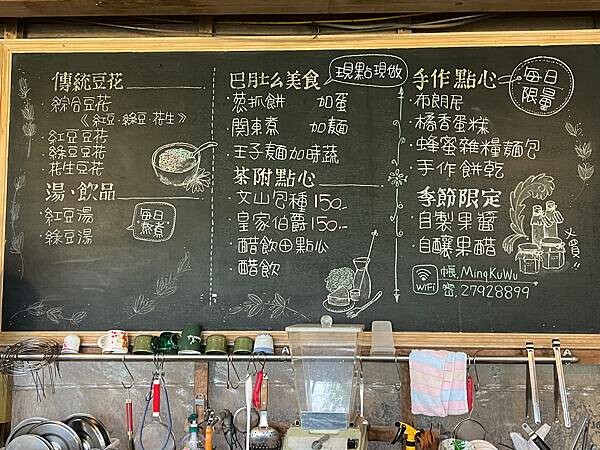 傳統豆花
·綜合豆花
《紅豆·綠豆·花生》
·紅豆豆花
綠豆豆花
花生豆花
湯、飲品
·紅豆湯
·綠豆湯
每日
熬煮
巴月土么美食
現點現做
·葱抓餅 加蛋
·関東煮 加麵
·王子麵加時蔬
茶附點心
·文山包種150.-
·皇家伯爵150.-
·醋飲田點心
·醋飲
手作點心
每日
限量
·布朗尼
·橘香蛋糕
·蜂蜜雜糧麵包
·手作餅乾
季節限定
·自製果醬
·自釀果醋
WiFi
帳.MingKuWu
密.27928899